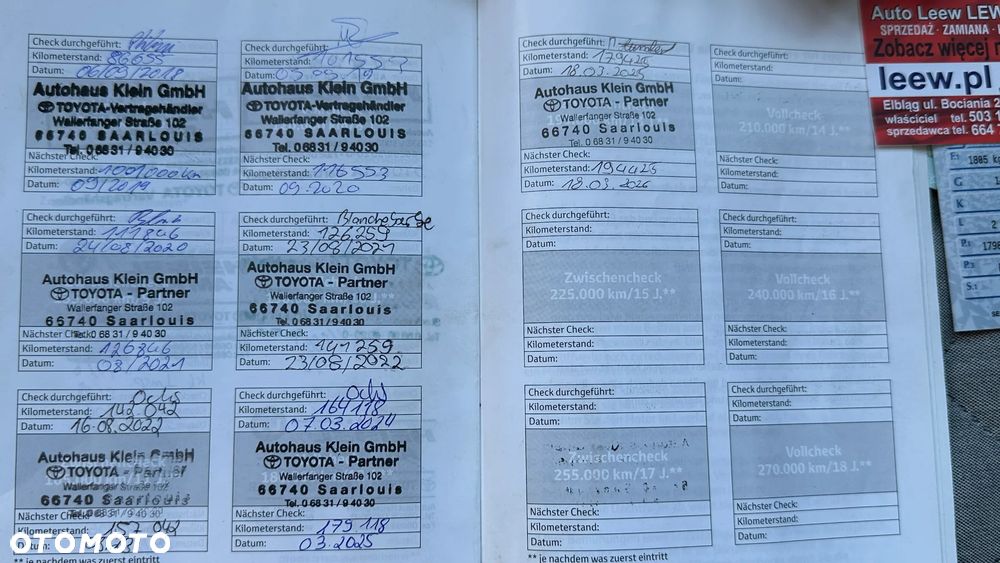 Check durchgeführt:
Kilometerstand: 86655
Datum: 06/09/2018
Autohaus Klein GmbH
TOYOTA-Vertragshändler
Wallerfanger Straße 102
66740 SAARLOUIS
Tel. 0 68 31 / 9 40 30
Nächster Check:
Kilometerstand:
Datum: 09/2019
Check durchgeführt:
Kilometerstand:
Datum:
Autohaus Klein GmbH
TOYOTA-Vertragshändler
Wallerfanger Straße 102
66740 SAARLOUIS
Tel. 0 68 31 / 9 40 30
Nächster Check:
Kilometerstand: 116553
Datum: 09.2020
Check durchgeführt:
Kilometerstand: 111846
Datum: 24/08/2020
Autohaus Klein GmbH
TOYOTA - Partner
Wallerfanger Straße 102
66740 Saarlouis
Tel. 0 68 31 / 9 40 30
Nächster Check:
Kilometerstand: 126846
Datum: 08/2021
Check durchgeführt:
Kilometerstand: 126259
Datum: 23/08/2021
Autohaus Klein GmbH
TOYOTA - Partner
Wallerfanger Straße 102
66740 Saarlouis
Tel. 0 68 31 / 9 40 30
Nächster Check:
Kilometerstand: 141259
Datum: 23/08/2022
Check durchgeführt: Ochs
Kilometerstand: 142 042
Datum: 16.08.2022
Autohaus Klein GmbH
TOYOTA - Partner
Wallerfanger Straße 102
66740 Saarlouis
Tel. 0 68 31 / 9 40 30
Nächster Check:
Kilometerstand: 157 042
OTOMOTO
Check durchgeführt: Ochs
Kilometerstand: 164118
Datum: 07.03.2024
Autohaus Klein GmbH
TOYOTA - Partner
Wallerfanger Straße 102
66740 Saarlouis
Tel. 0 68 31 / 9 40 30
Nächster Check:
Kilometerstand: 179 118
Datum: 03.2025
Check durchgeführt:
Kilometerstand: 179425
Datum: 18.03.2025
Autohaus Klein GmbH
TOYOTA - Partner
Wallerfanger Straße 102
66740 Saarlouis
Tel. 0 68 31 / 9 40 30
Nächster Check:
Kilometerstand: 194425
Datum: 18.03.2026
Check durchgeführt:
Kilometerstand:
Datum:
Vollcheck
210.000 km/14 J.**
Nächster Check:
Kilometerstand:
Datum:
Check durchgeführt:
Kilometerstand:
Datum:
Zwischencheck
225.000 km/15 J.**
Nächster Check:
Kilometerstand:
Datum:
Check durchgeführt:
Kilometerstand:
Datum:
Vollcheck
240.000 km/16 J.**
Nächster Check:
Kilometerstand:
Datum:
Check durchgeführt:
Kilometerstand:
Datum:
Zwischencheck
255.000 km/17 J.**
Nächster Check:
Kilometerstand:
Datum:
Check durchgeführt:
Kilometerstand:
Datum:
Vollcheck
270.000 km/18 J.**
Nächster Check:
Kilometerstand:
Datum:
** je nachdem was zuerst eintritt
** je nachdem was zuerst eintritt
Auto Leew LEW
SPRZEDAŻ · ZAMIANA
Zobacz więcej
leew.pl
Elbląg ul. Bociania 2
właściciel tel. 503 1
sprzedawca tel. 664
1885 k
G
L 2
P.1 1798
P.3
S.1